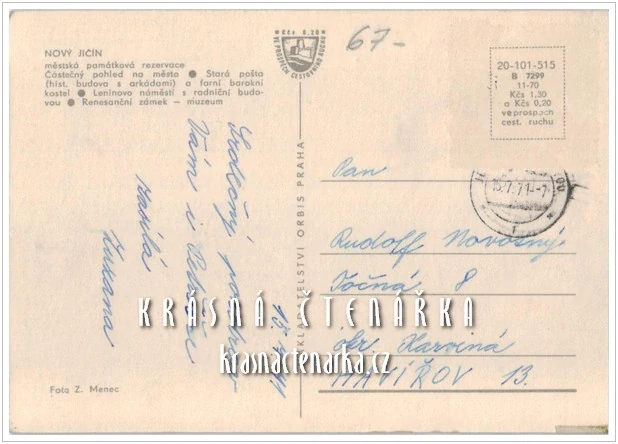 NOVÝ JIČÍN
městská památková rezervace
Částečný pohled na město ● Stará pošta
(hist. budova s arkádami) a farní barokní
kostel ● Leninovo náměstí s radniční budo-
vou ● Renesanční zámek – muzeum
Kčs 0,20
VE PROSPĚCH CESTOVNÍHO RUCHU
67-
20-101-515
B 7299
11-70
Kčs 1,30
a Kčs 0,20
ve prospěch
cest. ruchu
Srdečný pozdrav
Vám i
zasílá
Zuzana
VYDAVATELSTVÍ ORBIS PRAHA
Pan
Rudolf Novosný
Točná 8
okr. Karviná
HAVÍŘOV 13.
KRÁSNÁ ČTENÁŘKA
krasnactenarka.cz
Foto Z. Menec